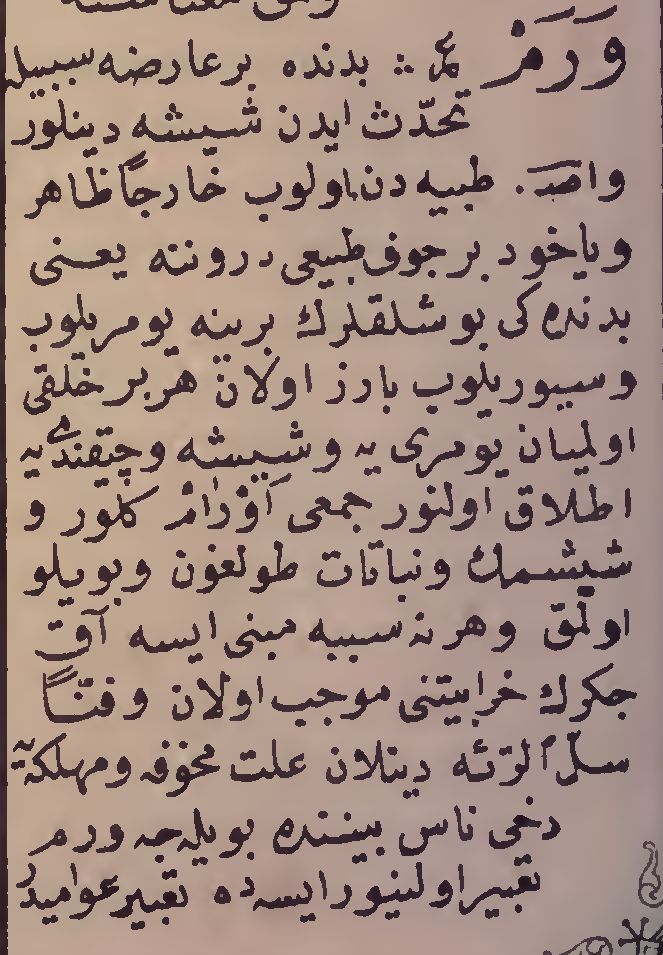 وَرَمْ عر : بدنده بر عارضه سببيله
تحدّث ايدن شيشه دينلور
طبيه دن اولوب خارجاً ظاهر
وياخود بر جوف طبيعى درونته يعنى
بدنده كى بوشلقلرك برينه يومريلوب
وسيوريلوب بارز اولان هر بر خلقى
اولميان يومرى يه وشيشه وچقندى يه
اطلاق اولنور جمعى آوْرَامْ كلور و
شيشمك ونباتات طولغون وبويلو
اولمق وهر نه سببه مبنى ايسه آق
جكرك خرابيتنى موجب اولان وفتّاً
سلّ الرّئه دينلان علت مخوفه ومهلكه يه
دخى ناس بيننده بويله جه ورم
تعبير اولنيور ايسه ده تعبير عواميدر